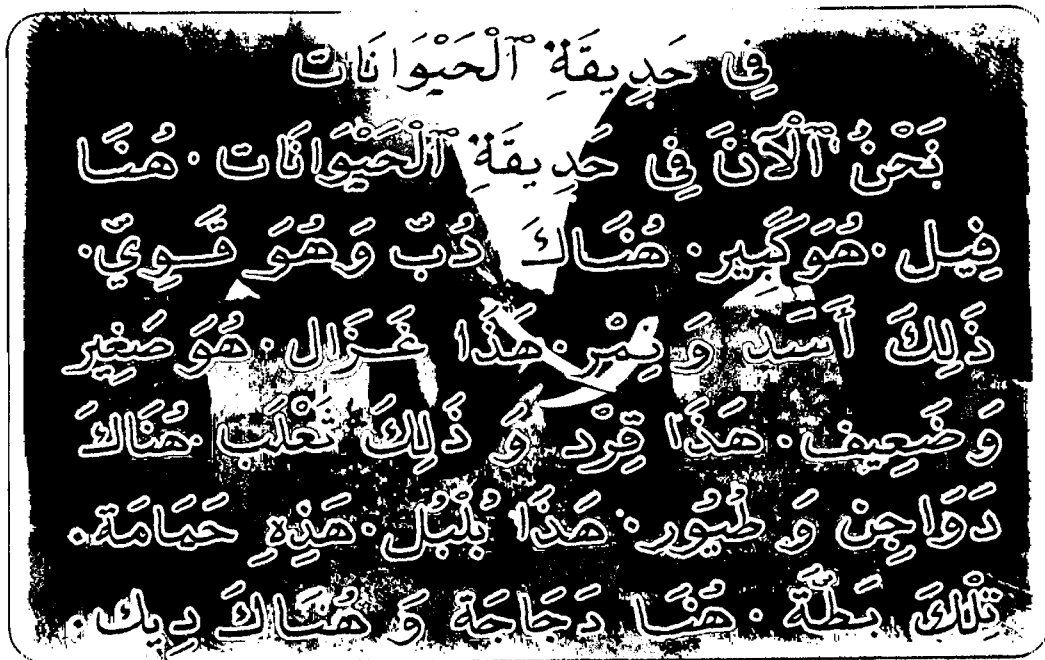 فِي حَدِيقَةِ ٱلْحَيْوَانَاتْ
نَحْنُ ٱلْآنَ فِي حَدِيقَةِ ٱلْحَيْوَانَات. هُنَا
فِيل. هُوَ كَبِير. هُنَاكَ دُبّ وَهُوَ قَوِيّ.
ذَلِكَ أَسَد وَ نِمْر. هَذَا غَزَال. هُوَ صَغِير
وَضَعِيف. هَذَا قِرْد وَ ذَلِكَ ثَعْلَب. هُنَاكَ
دَوَاجِن وَ طُيُور. هَذَا بُلْبُل. هَذِهِ حَمَامَة.
تِلْكَ بَطَّة. هُنَا دَجَاجَة وَ هُنَاكَ دِيك.